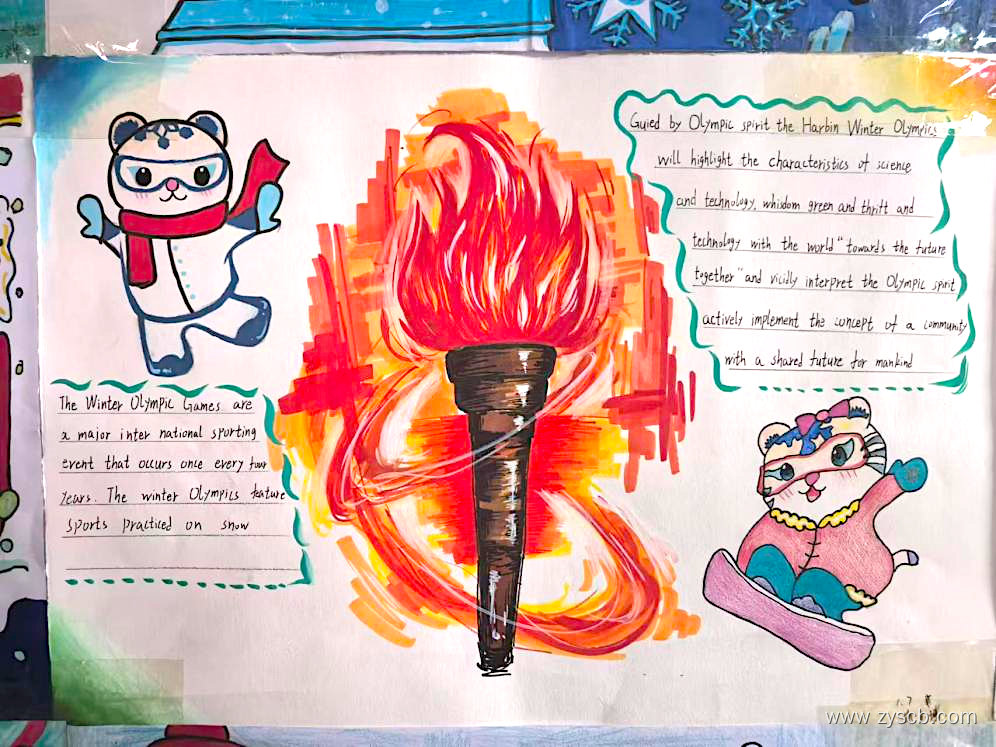 The Winter Olympic Games are
a major inter national sporting
event that occurs once every four
years. The winter Olympics feature
sports practiced on snow
Guied by Olympic spirit the Harbin Winter Olympics
will highlight the characteristics of science
and technology, whisdom green and thrift and
technology with the world "towards the future
together" and vicidly interpret the Olympic spirit
actively implement the concept of a community
with a shared future for mankind
www.zyscbl.com